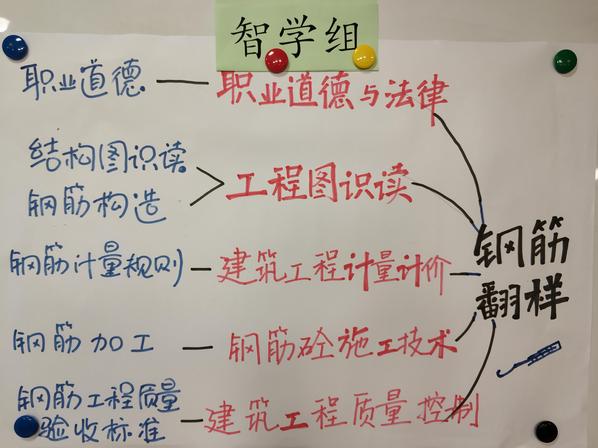 智学组
职业道德
职业道德与法律
结构图识读
钢筋构造
工程图识读
钢筋计量规则
建筑工程计量计价
钢筋加工
钢筋砼施工技术
钢筋工程质量
验收标准
建筑工程质量控制
钢筋
翻样